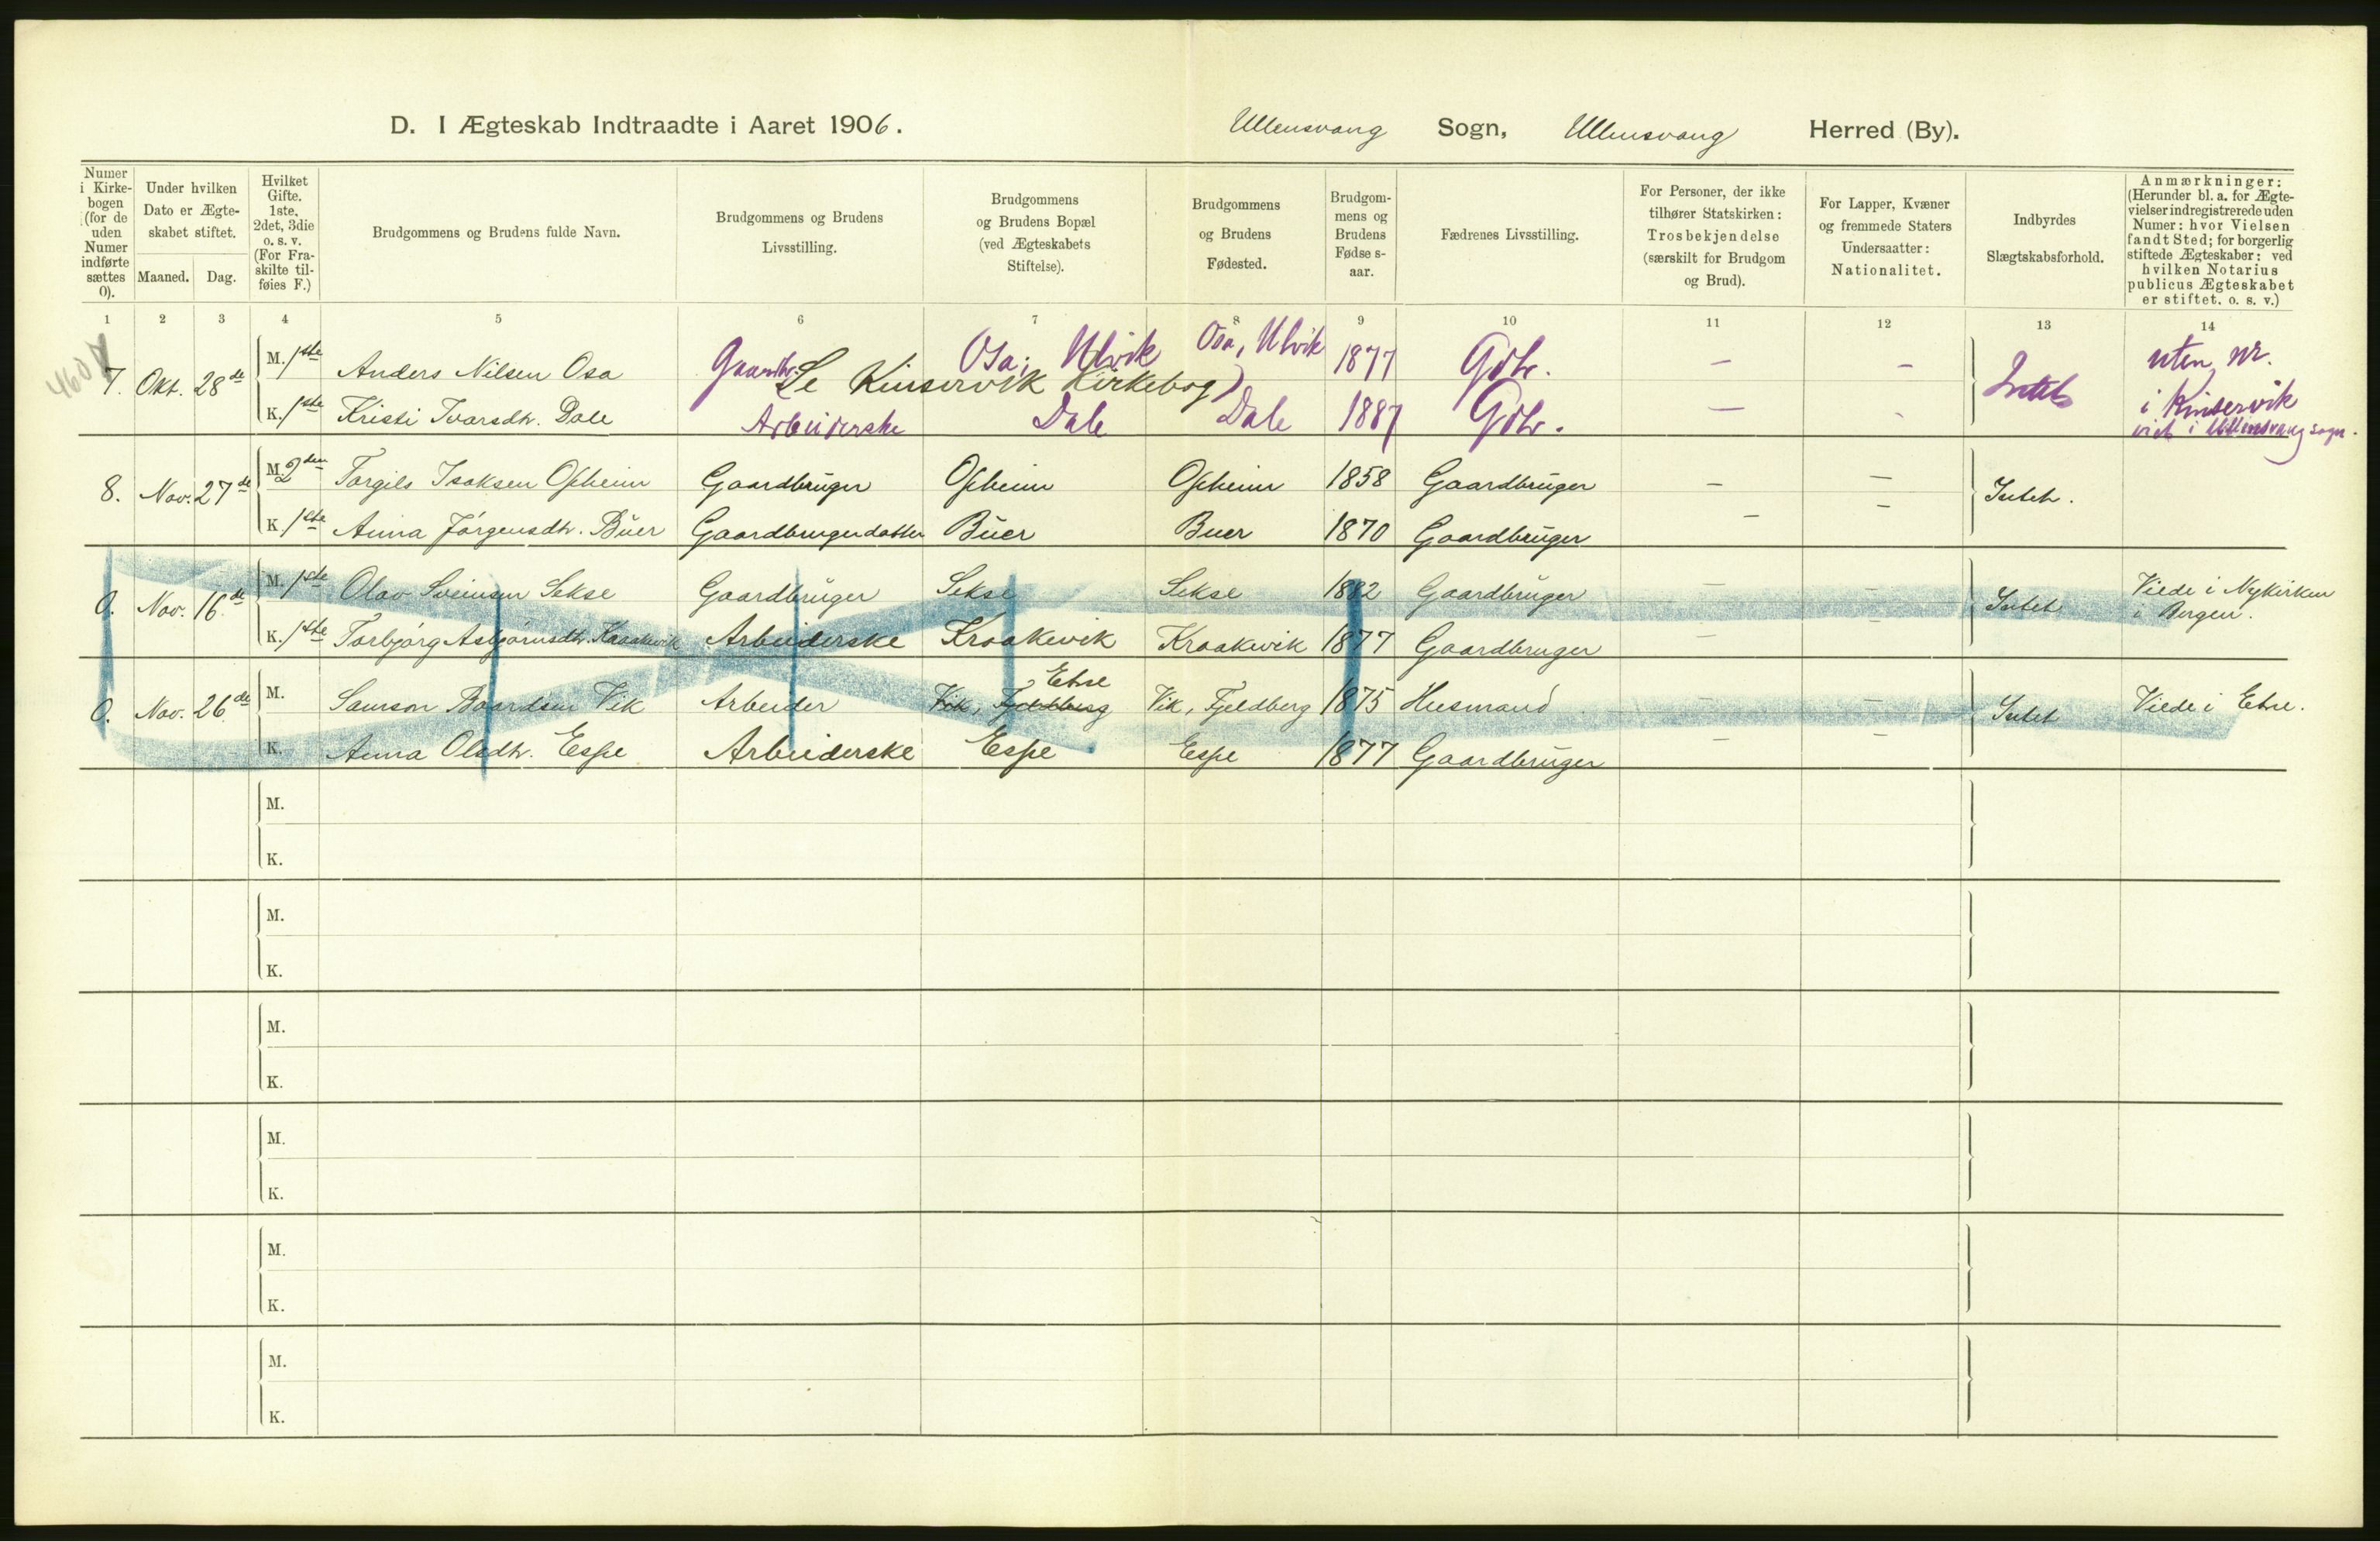 D. I Ægteskab Indtraadte i Aaret 1906.
Ullensvang Sogn, Ullensvang Herred (By).
Numer i Kirkebogen (for de uden Numer indførte sættes 0).
Under hvilken Dato er Ægteskabet stiftet.
Maaned. Dag.
Hvilket Gifte. 1ste, 2det, 3die o. s. v. (For Fraskilte tilføies F.)
Brudgommens og Brudens fulde Navn.
Brudgommens og Brudens Livsstilling.
Brudgommens og Brudens Bopæl (ved Ægteskabets Stiftelse).
Brudgommens og Brudens Fødested.
Brudgommens og Brudens Fødselsaar.
Fædrenes Livsstilling.
For Personer, der ikke tilhører Statskirken: Trosbekjendelse (særskilt for Brudgom og Brud).
For Lapper, Kvæner og fremmede Staters Undersaatter: Nationalitet.
Indbyrdes Slægtskabsforhold.
Anmærkninger: (Herunder bl. a. for Ægtevielser indregistrerede uden Numer: hvor Vielsen fandt Sted; for borgerlig stiftede Ægteskaber: ved hvilken Notarius publicus Ægteskabet er stiftet. o. s. v.)
1 2 3 4 5 6 7 8 9 10 11 12 13 14
7. Okt. 28de M. 1ste Anders Nilsen Osa Gaardbr. Osa, Ulvik Osa, Ulvik 1877 Gdbr. — — Intet uten nr.
Se Kinservik Kirkebog)
K. 1ste Kristi Ivarsdtr. Dale Arbeiderske Dale Dale 1887 Gdbr. — - i Kinservik
viet i Ullensvang sogn.
8. Nov. 27de M. 2den Torgils Isaksen Opheim Gaardbruger Opheim Opheim 1858 Gaardbruger — — Intet.
K. 1ste Anna Jørgensdtr. Buer Gaardbrugerdatter Buer Buer 1870 Gaardbruger — —
0. Nov. 16de M. 1ste Olav Sveinsen Sekse Gaardbruger Sekse Sekse 1882 Gaardbruger — — Intet Viede i Nykirken
i Bergen.
K. 1ste Torbjørg Asbjørnsdtr. Kraakevik Arbeiderske Kraakevik Kraakevik 1877 Gaardbruger — —
Etne
0. Nov. 26de M. Samson Baardsen Vik Arbeider Vik, Fjeldberg Vik, Fjeldberg 1875 Husmand — — Intet Viede i Etne.
K. Anna Olsdtr. Espe Arbeiderske Espe Espe 1877 Gaardbruger — —
M.
K.
M.
K.
M.
K.
M.
K.
M.
K.
M.
K.